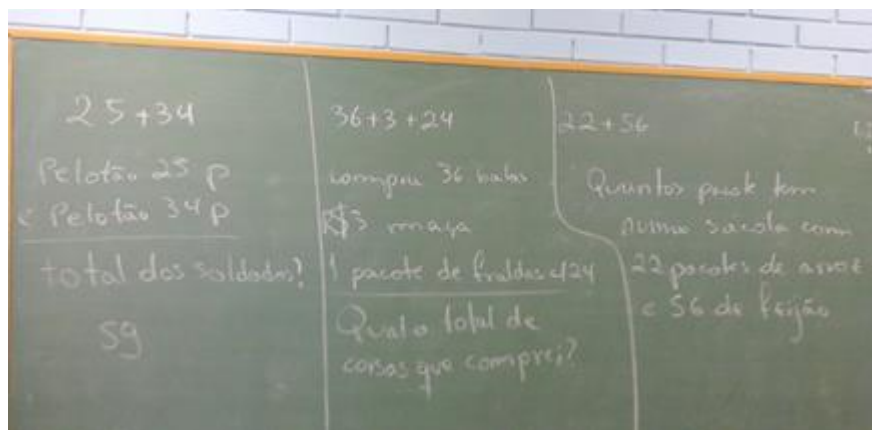 25+34
Pelotão 25 p
e Pelotão 34 p
total dos soldados?
59
36+3+24
compra 36 balas
3 maçã
1 pacote de fraldas c/24
Qual o total de
coisas que comprei?
22+56
Quantos pacot tem
numa sacola com
22 pacotes de arroz
e 56 de feijão